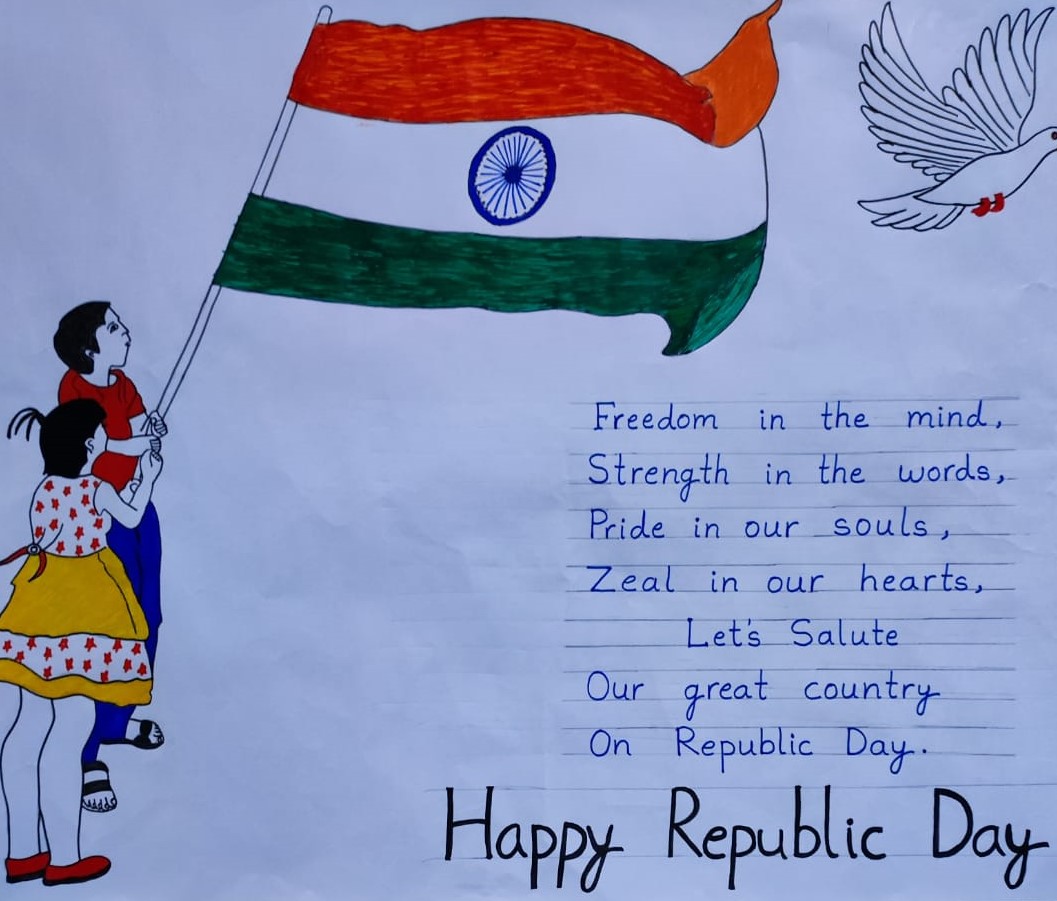 Freedom in the mind,
Strength in the words,
Pride in our souls,
Zeal in our hearts,
Let's Salute
Our great country
On Republic Day.
Happy Republic Day